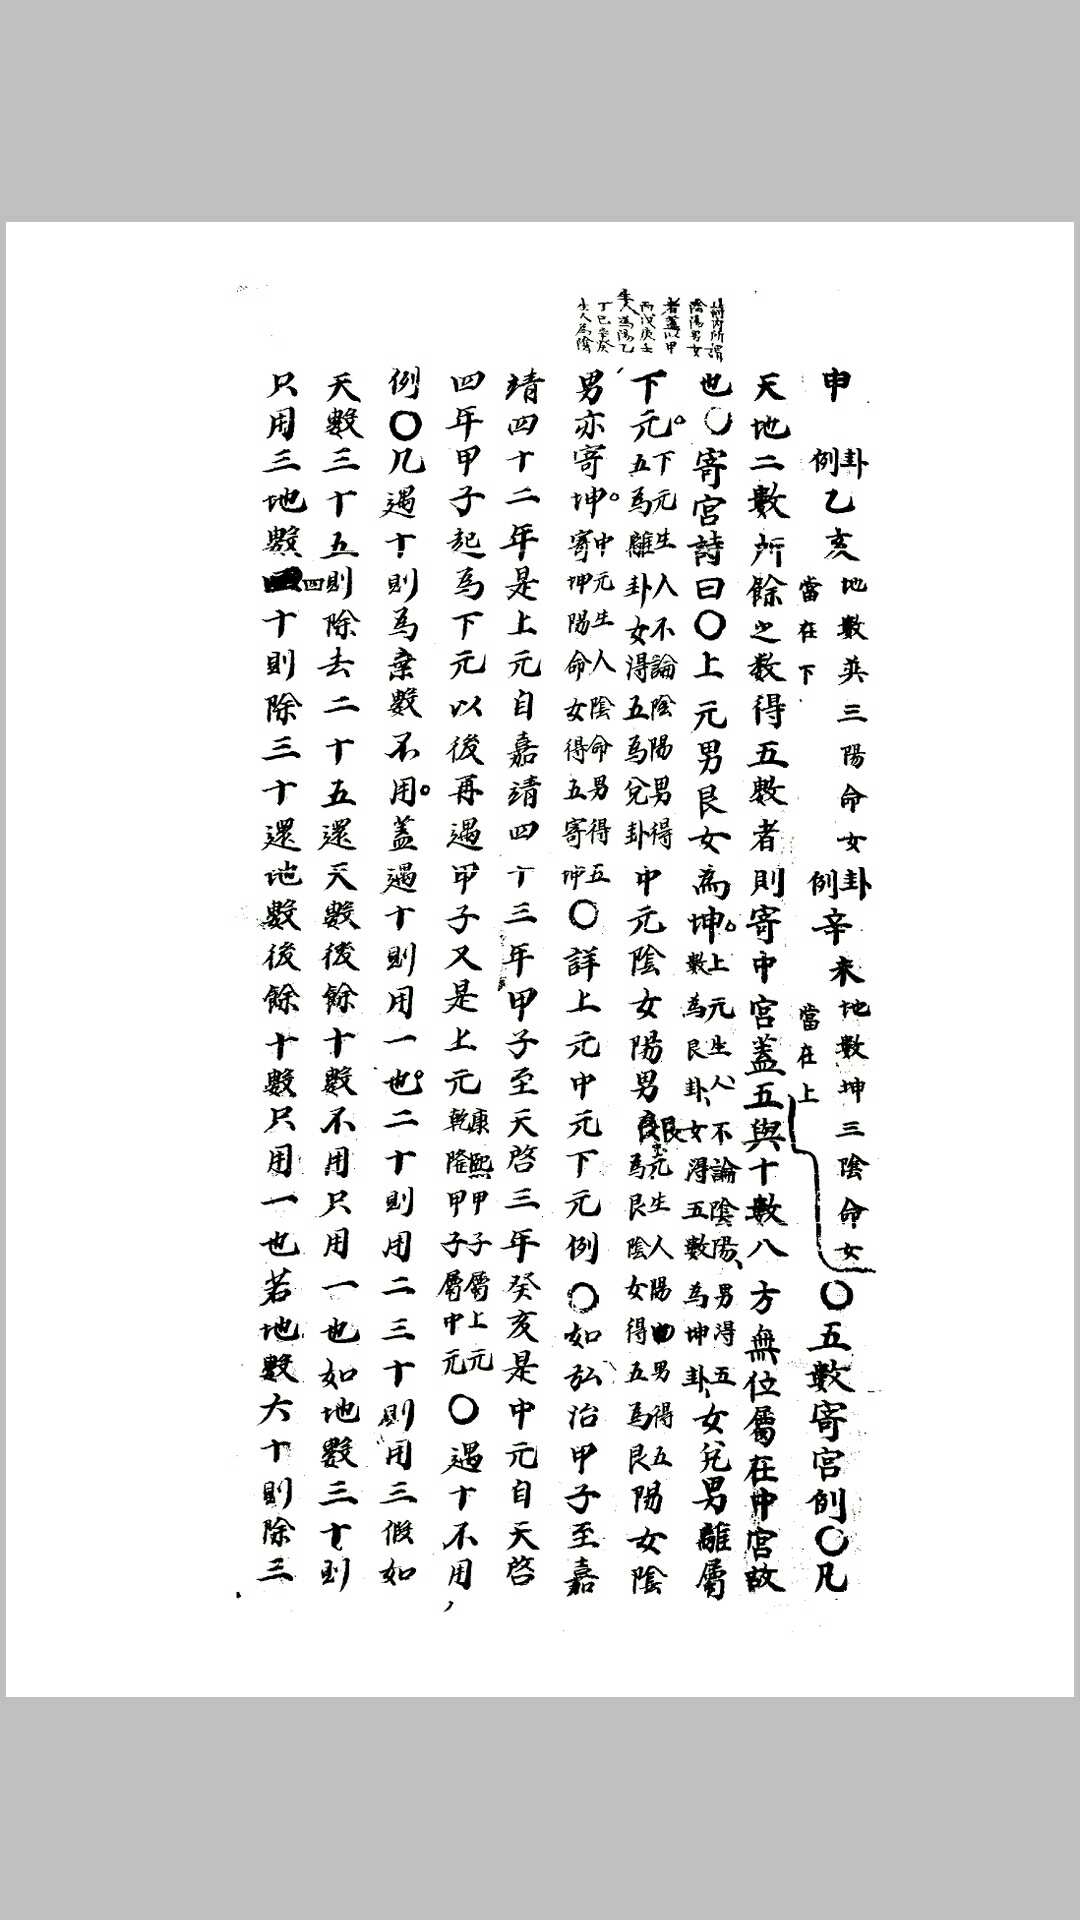 詩內所謂
陰陽男女
者蓋以甲
丙戊庚壬
生人為陽乙
丁己辛癸
生人為陰
申
卦例
乙亥
地數英三陽命女
當在下
卦例
辛未
地數坤三陰命女
當在上
〇五數寄宮例〇凡
天地二數所餘之数得五数者則寄中宮蓋五與十數八方無位屬在中宮故
也〇寄宮詩曰〇上元男艮女為坤。
上元生人不論陰陽男得五
數為艮卦女得五數為坤卦
女兌男離屬
下元。
下元生人不論陰陽男得
五為離卦女得五為兌卦
中元陰女陽男艮
元生人陽男得五
為艮陰女得五為艮
陽女陰
男亦寄坤。
中元生人陰命男得五
寄坤陽命女得五寄坤
〇詳上元中元下元例〇如弘治甲子至嘉
靖四十二年是上元自嘉靖四十三年甲子至天啓三年癸亥是中元自天啓
四年甲子起為下元以後再遇甲子又是上元
康熙甲子屬上元
乾隆甲子屬中元
〇遇十不用
例〇凡遇十則為棄數不用。蓋遇十則用一也。二十則用二三十則用三假如
天數三十五則除去二十五還天數後餘十數不用只用一也如地數三十則
只用三地數四十則除三十還地數後餘十數只用一也若地數六十則除三